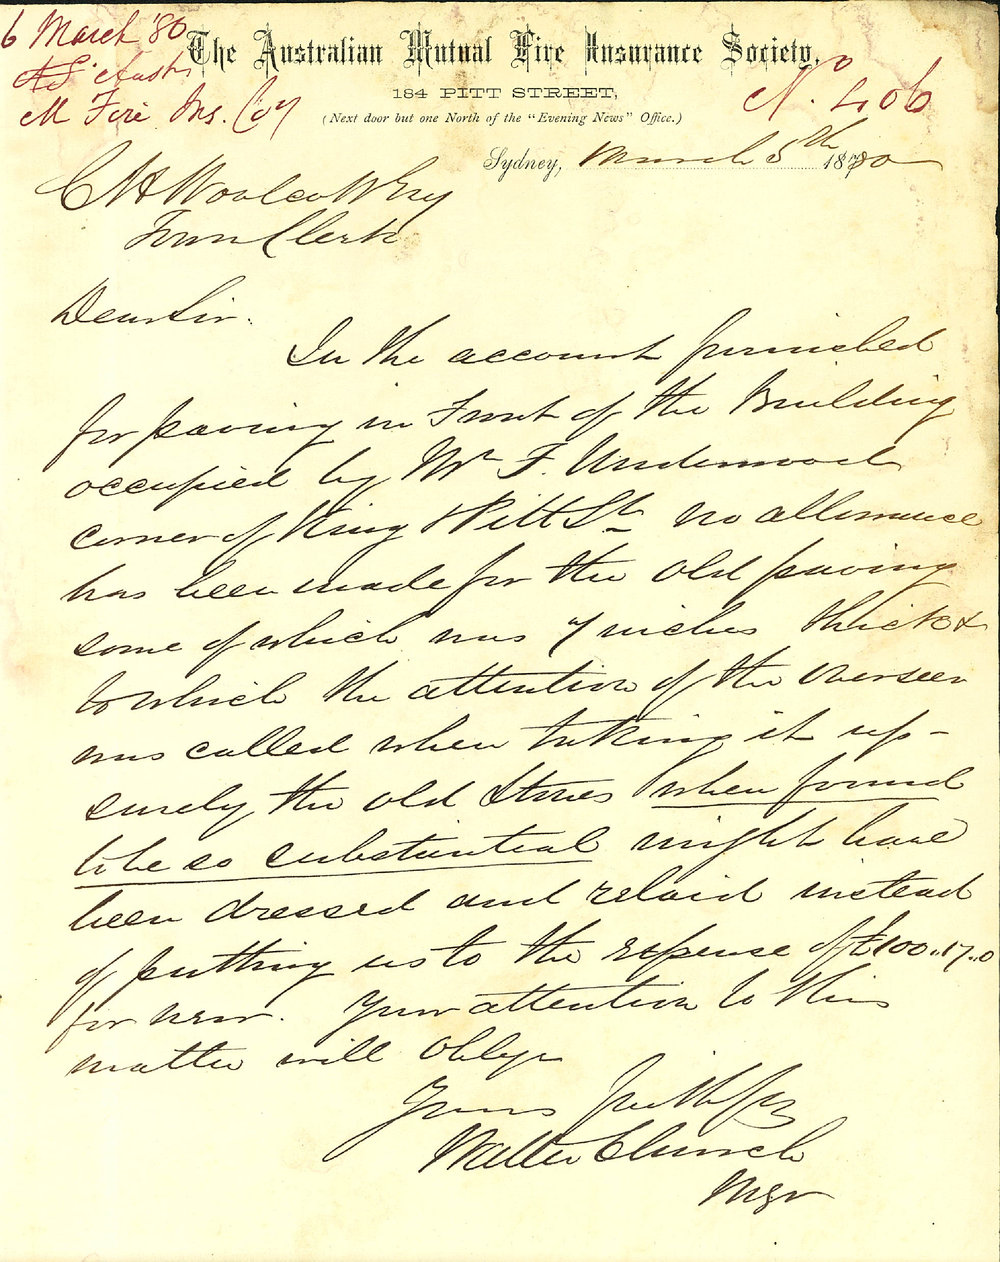 6 March '80
M Fire Ins. Coy
The Australian Mutual Fire Insurance Society,
184 PITT STREET,
(Next door but one North of the "Evening News" Office.)
No. 406
Sydney, March 5th 1880
C H Woolcott Esq
Town Clerk
Dear Sir.
In the account furnished
for paving in Front of the Building
occupied by Mr F. Underwood
corner of King & Pitt St no allowance
has been made for the old paving
some of which was 7 inches thick &
to which the attention of the overseer
was called when taking it up -
surely the old Stones when found
to be so substantial might have
been dressed and relaid instead
of putting us to the expense of £100..17..0
for new. Your attention to this
matter will oblige
Yours faithfy
Walter Church
Mgr